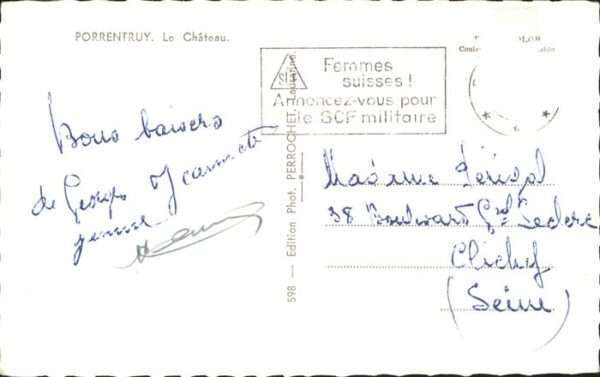 PORRENTRUY. Le Château.
Femmes
suisses !
Annoncez-vous pour
le SCF militaire
Bons baisers
de Georges Jeannette
598 — Edition Phot. PERROCHET, Lausanne.
Madame
38 Boulevard Gral Leclerc
Clichy
(Seine)